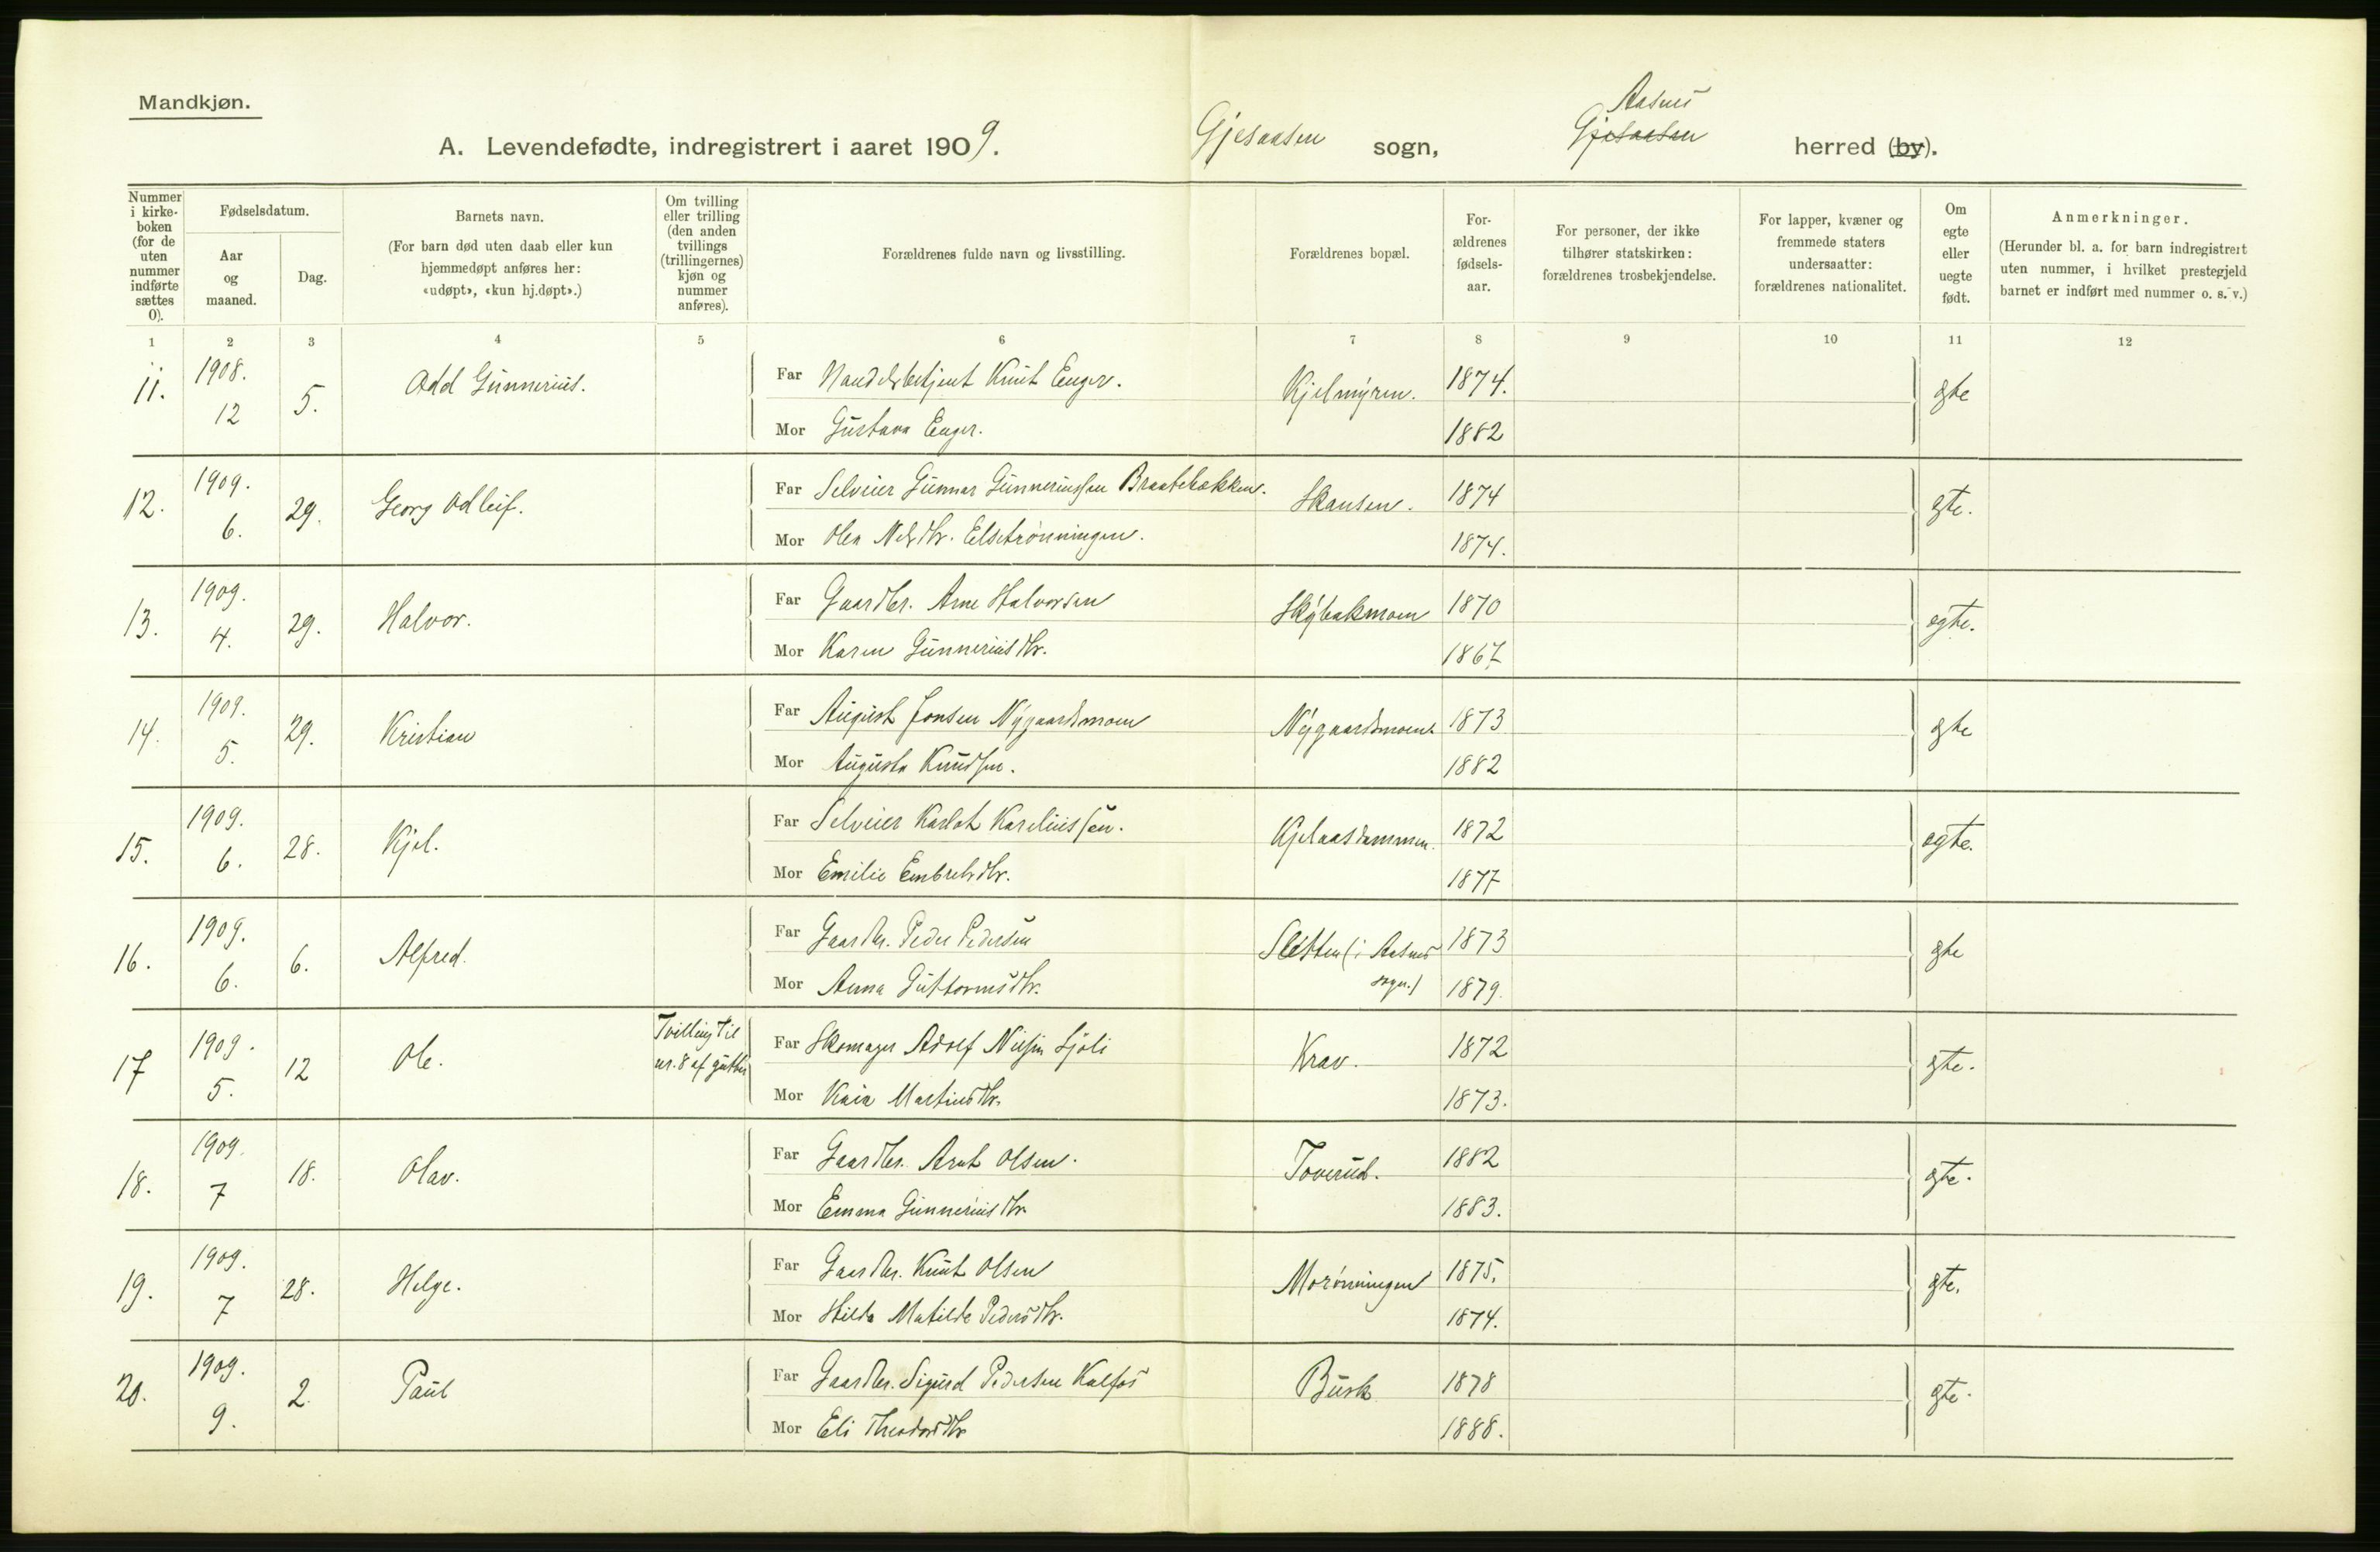 Mandkjøn.
A. Levendefødte, indregistrert i aaret 1909.
Gjesaasen sogn,
Aasnes
Gjesaasen herred (by).
Nummer i kirke- boken (for de uten nummer indførte sættes 0).
Fødselsdatum.
Aar og maaned.
Dag.
Barnets navn.
(For barn død uten daab eller kun hjemmedøpt anføres her: «udøpt», «kun hj.døpt».)
Om tvilling eller trilling (den anden tvillings (trillingernes) kjøn og nummer anføres).
Forældrenes fulde navn og livsstilling.
Forældrenes bopæl.
For- ældrenes fødsels- aar.
For personer, der ikke tilhører statskirken: forældrenes trosbekjendelse.
For lapper, kvæner og fremmede staters undersaatter: forældrenes nationalitet.
Om egte eller uegte født.
Anmerkninger.
(Herunder bl. a. for barn indregistrert uten nummer, i hvilket prestegjeld barnet er indført med nummer o. s. v.)
1 2 3 4 5 6 7 8 9 10 11 12
11. 1908. 12 5. Odd Gunnerius. Far Handelsbetjent Knut Enger. Kjelmyren. 1874. egte
Mor Gustava Enger. 1882
12. 1909. 6. 29. Georg Odleif. Far Selveier Gunnar Gunneriussen Braatebakken. Skansen. 1874 egte.
Mor Olea Nelsdtr. Elsetrønningen. 1874.
13. 1909. 4. 29. Halvor. Far Gaardbr. Arne Halvorsen Skybakmoen 1870 egte.
Mor Karen Gunneriusdtr. 1867
14. 1909. 5. 29. Kristian Far August Jonsen Nygaardsmoen Nygaardsmoen. 1873 egte
Mor Augusta Knudsen. 1882
15. 1909. 6. 28. Kjel. Far Selveier Karlot Kareliussen. Kjelaasdammen. 1872 egte.
Mor Emilie Embretsdtr. 1877
16. 1909. 6. 6. Alfred. Far Gaardbr. Peder Pedersen Sletten (i Aasnes sogn.) 1873 egte
Mor Anna Guttormsdtr. 1879.
17 1909. 5. 12 Ole. Tvilling til nr. 8 af gutter Far Skomager Adolf Nilsen Sjøli Krav. 1872 egte.
Mor Kaia Martinsdtr. 1873.
18. 1909. 7 18. Olav. Far Gaardbr. Arnt Olsen. Toverud. 1882 egte.
Mor Emma Gunneriusdtr 1883.
19. 1909. 7 28. Helge. Far Gaardbr. Knut Olsen Morønningen 1875. egte.
Mor Hilda Matilde Pedersdtr. 1874.
20. 1909. 9. 2. Paul Far Gaardbr. Sigurd Pedersen Kalfos Busk 1878 egte.
Mor Eli Theodorsdtr 1888.